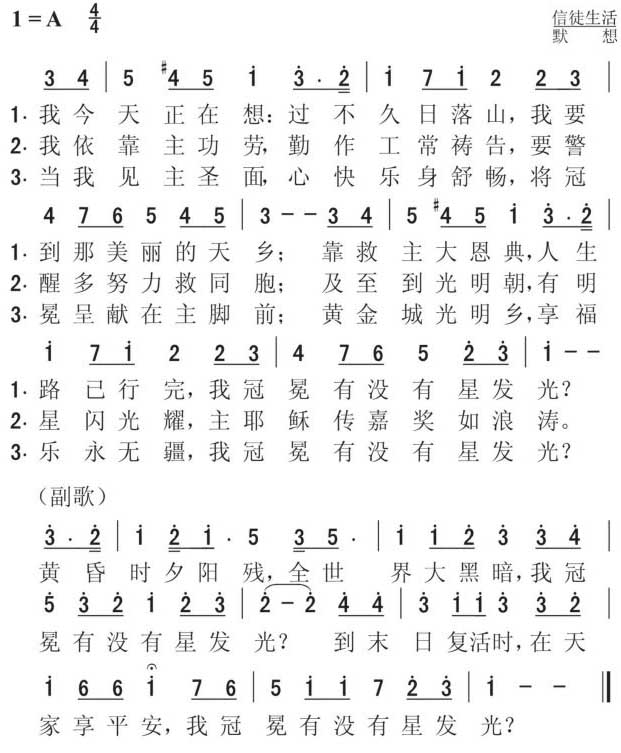 1=A 4/4
信徒生活
默 想
3 4 | 5 #4 5 i 3 · 2 | i 7 i 2 2 3 |
1. 我今 天 正在 想：过 不 久 日落 山，我要
2. 我依 靠 主功 劳，勤 作 工 常祷 告，要警
3. 当我 见 主圣 面，心 快 乐 身舒 畅，将冠
4 7 6 5 4 5 | 3 - - 3 4 | 5 #4 5 i 3 · 2 |
1. 到那美丽的天 乡； 靠救 主大恩典，人生
2. 醒多努力救同 胞； 及至 到光明朝，有明
3. 冕呈献在主脚 前； 黄金 城光明乡，享福
i 7 i 2 2 3 | 4 7 6 5 2 3 | i - -
1. 路 已行 完，我冠 冕 有没 有 星发 光？
2. 星 闪光 耀，主耶 稣 传嘉 奖 如浪 涛。
3. 乐 永无 疆，我冠 冕 有没 有 星发 光？
（副歌）
3 · 2 | i 2 i · 5 3 5 · | i i 2 3 3 4 |
黄 昏 时夕阳 残，全世 界大黑暗，我冠
5 3 2 i 2 3 | 2 - 2 4 4 | 3 i i 3 3 2 |
冕有没有星发 光？ 到末 日复活时，在天
i 6 6 i 7 6 | 5 i i 7 2 3 | i - - ‖
家享平安，我冠 冕有没有星发 光？